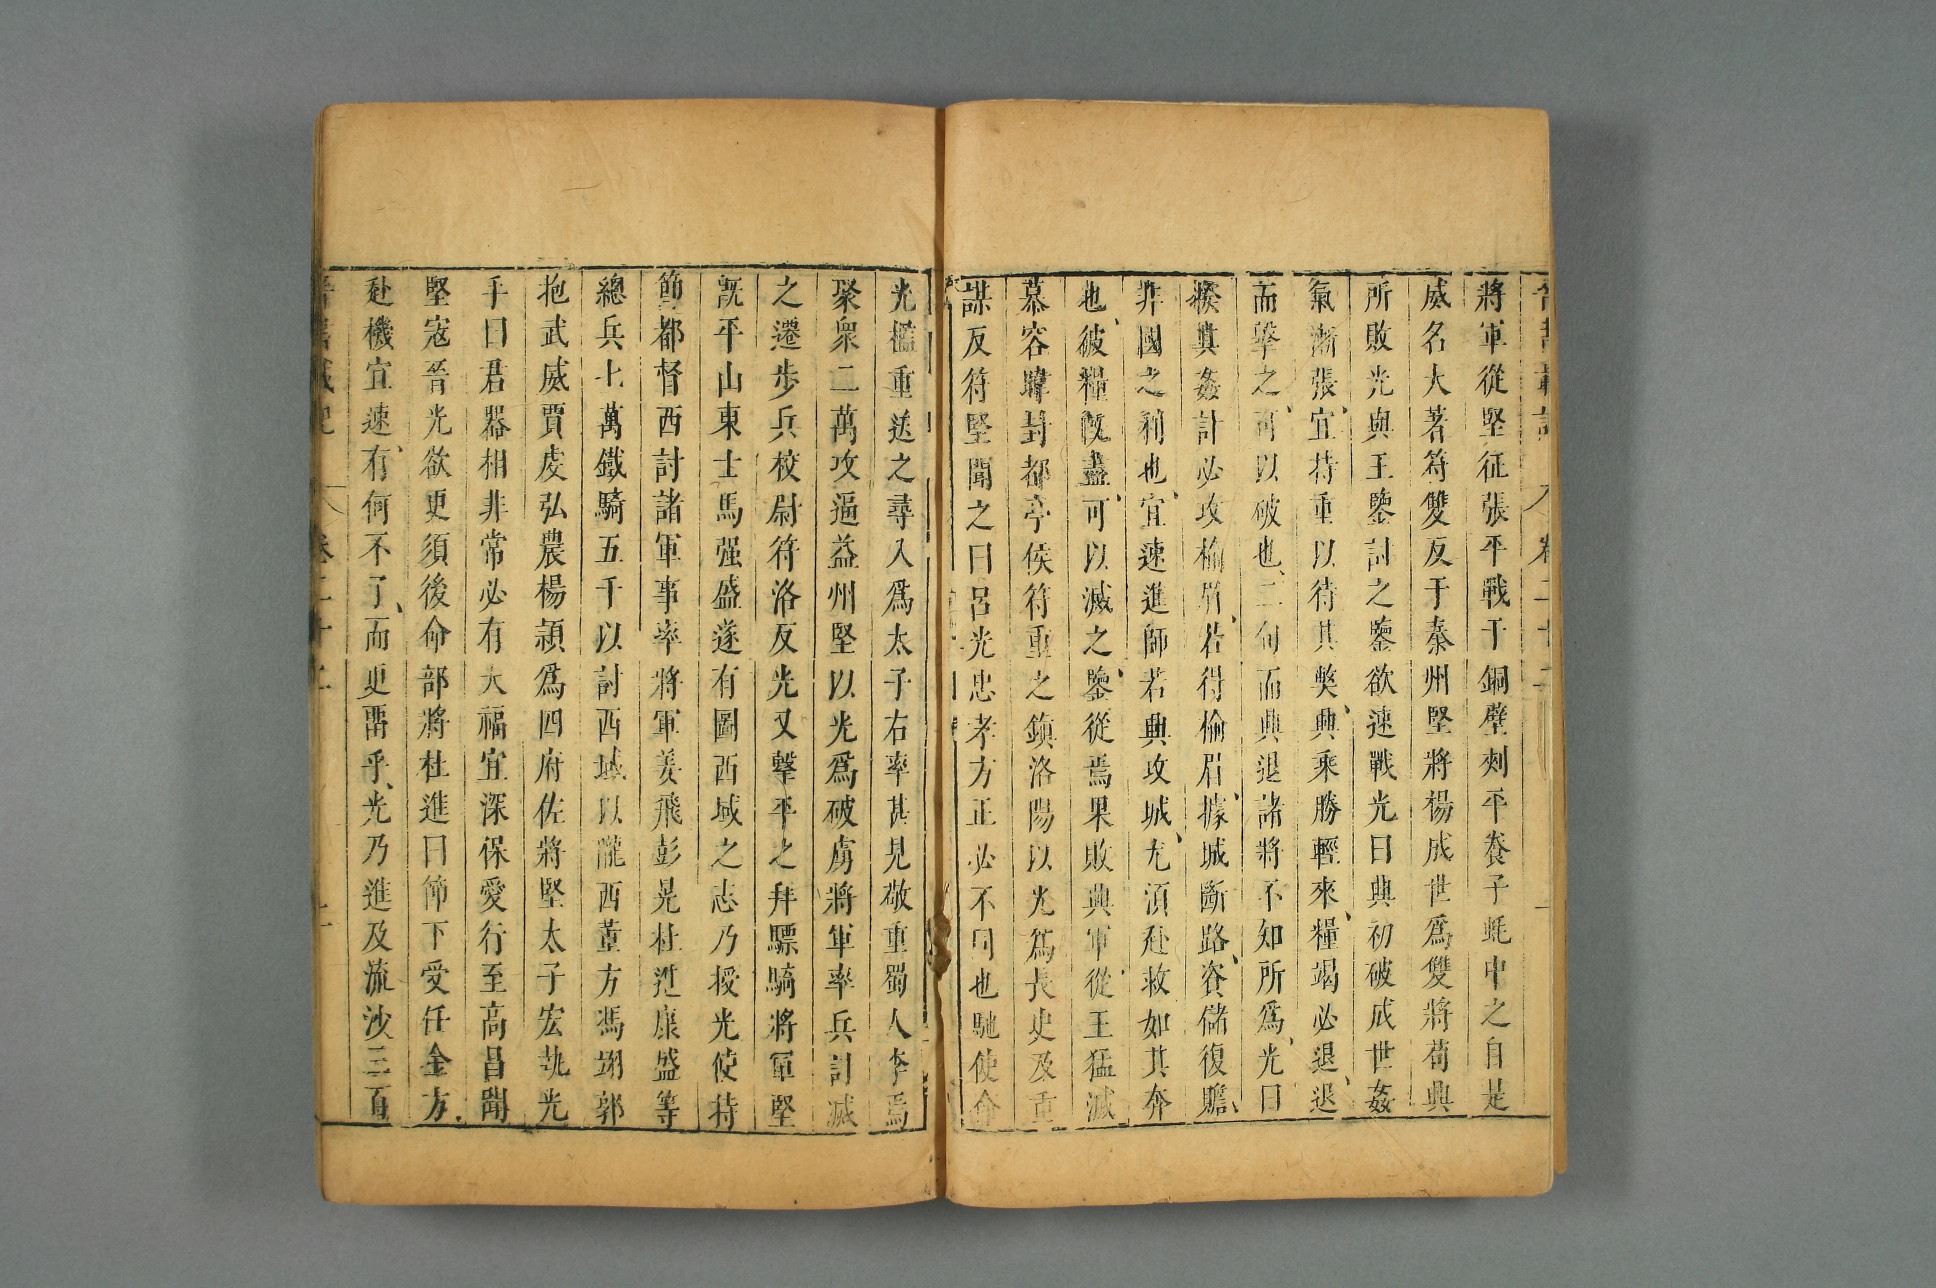 晉書載記 卷二十二
將軍從堅征張平戰于銅壁刺平養子蚝中之自是
威名大著苻雙反于秦州堅將楊成世爲雙將苟興
所敗光與王鑒討之鑒欲速戰光曰興初破成世姦
氣漸張宜持重以待其獘興乘勝輕來糧竭必退退
而擊之可以破也二旬而興退諸將不知所爲光曰
揆其姦計必攻榆眉若得榆眉據城斷路資儲復贍
非國之利也宜速進師若興攻城尤須赴救如其奔
也彼糧既盡可以滅之鑒從焉果敗興軍從王猛滅
慕容暐封都亭侯苻重之鎮洛陽以光爲長史及重
謀反苻堅聞之曰呂光忠孝方正必不同也馳使命
光檻重送之尋入爲太子右率甚見敬重蜀人李焉
聚衆二萬攻逼益州堅以光爲破虜將軍率兵討滅
之遷步兵校尉苻洛反光又擊平之拜驃騎將軍堅
既平山東士馬强盛遂有圖西域之志乃授光使持
節都督西討諸軍事率將軍姜飛彭晃杜進康盛等
總兵七萬鐵騎五千以討西域以隴西董方馮翊郭
抱武威賈虔弘農楊頴爲四府佐將堅太子宏執光
手曰君器相非常必有大福宜深保愛行至高昌聞
堅寇晉光欲更須後命部將杜進曰節下受任金方
赴機宜速有何不了而更畱乎光乃進及流沙三百
卷二十二